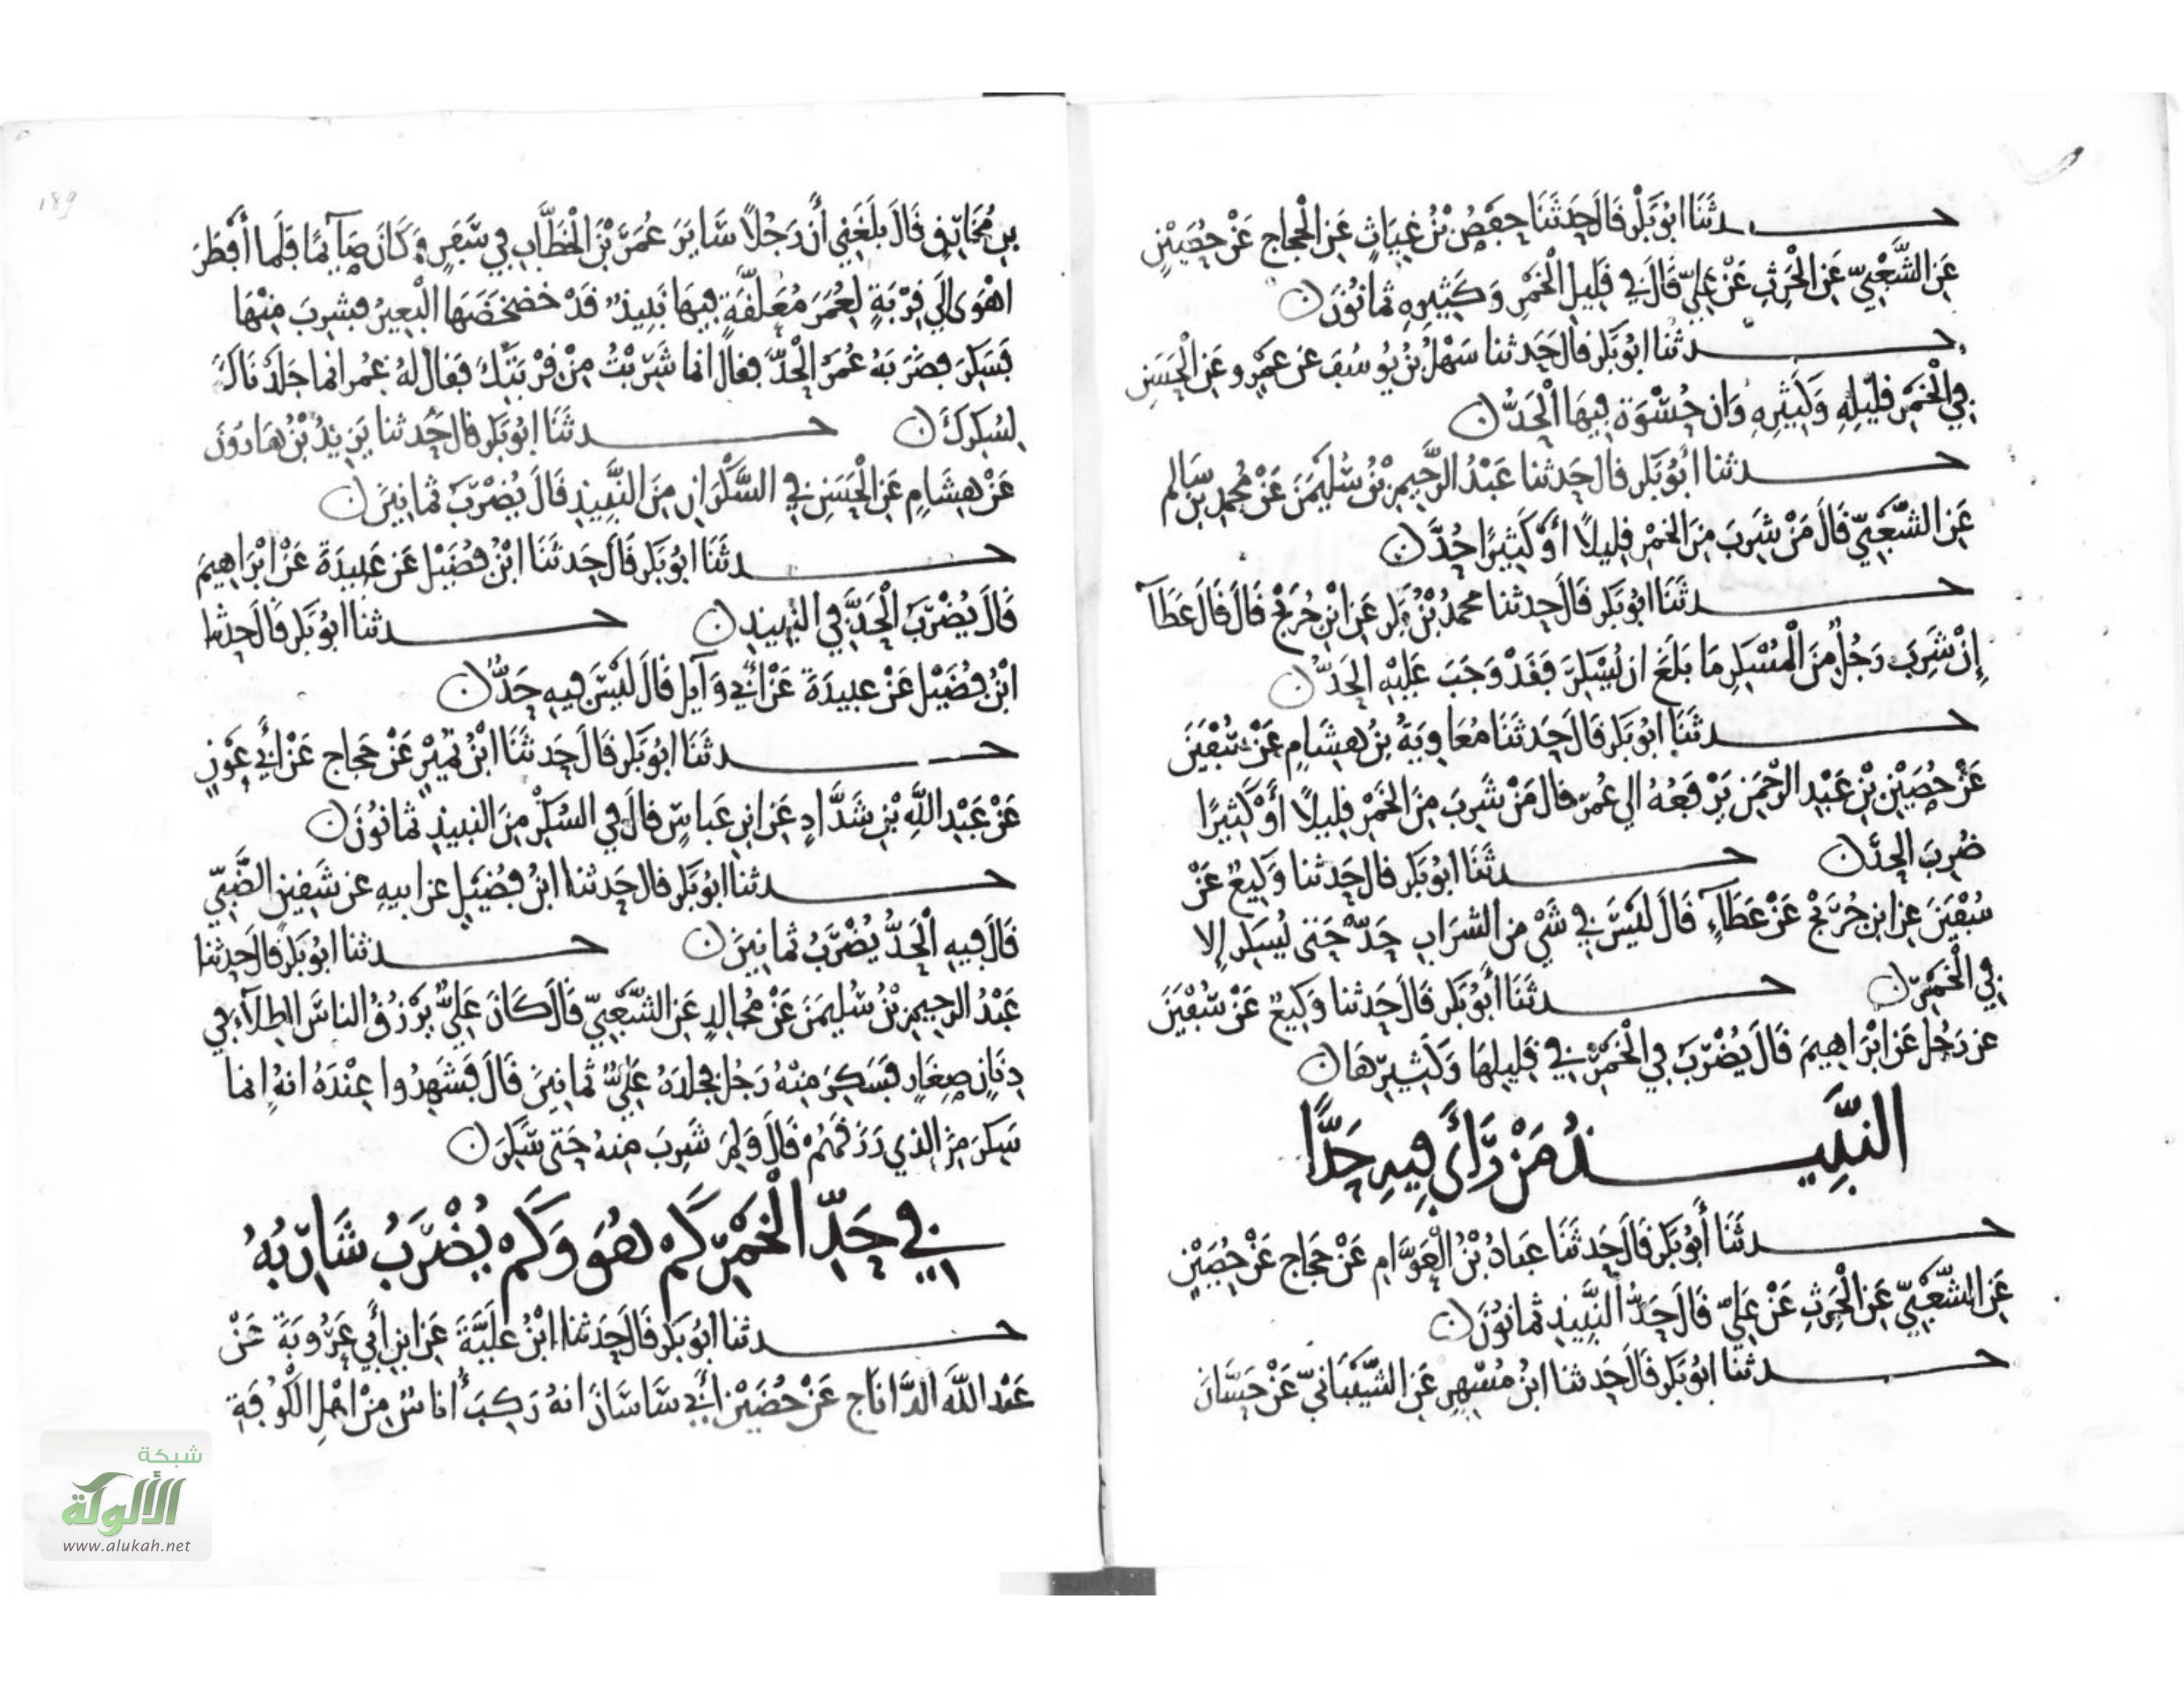 حدثنا ابو بكر قال حدثنا حفص بن غياث عن الحجاج عن حصين
عن الشعبي عن الحرث عن علي قال في قليل الخمر وكثيره ثمانون
حدثنا ابو بكر قال حدثنا سهل بن يوسف عن عمرو عن الحسن
في الخمر قليله وكثيره وان حسوة فيها الحد
حدثنا أبو بكر قال حدثنا عبد الرحيم بن سليمن عن محمد بن سالم
عن الشعبي قال من شرب من الخمر قليلا أو كثيرا حد
حدثنا ابو بكر قال حدثنا محمد بن بكر عن ابن جريج قال قال عطآ
إن شرب رجل من المسكر ما بلغ ان يسكر فقد وجب عليه الحد
حدثنا ابو بكر قال حدثنا معاوية بن هشام عن سفين
عن حصين بن عبد الرحمن يرفعه الي عمر قال من شرب من الخمر قليلا أو كثيرا
ضرب الحد حدثنا ابو بكر قال حدثنا وكيع عن
سفين عن ابن جريج عن عطآء قال ليس في شي من الشراب حد حتى يسكر إلا
في الخمر حدثنا أبو بكر قال حدثنا وكيع عن سفين
عن رجل عن ابراهيم قال يضرب في الخمر في قليلها وكثيرها
النبيذ من رأى فيه حدا
حدثنا أبو بكر قال حدثنا عباد بن العوام عن حجاج عن حصين
عن الشعبي عن الحرث عن علي قال حد النبيذ ثمانون
حدثنا ابو بكر قال حدثنا ابن مسهر عن الشيباني عن حسان
بن مخارق قال بلغني أن رجلا ساير عمر بن الخطاب في سفر وكان صآيما فلما أفطر
اهوى الي قربة لعمر معلقة فيها نبيذ قد خضخضها البعير فشرب منها
فسكر فضربه عمر الحد فقال انما شربت من قربتك فقال له عمر انما جلدناك
لسكرك حدثنا ابو بكر قال حدثنا يزيد بن هارون
عن هشام عن الحسن في السكران من النبيذ قال يضرب ثمانين
حدثنا ابو بكر قال حدثنا ابن فضيل عن عبيدة عن ابراهيم
قال يضرب الحد في النبيذ حدثنا ابو بكر قال حدثنا
ابن فضيل عن عبيدة عن أبي وآيل قال ليس فيه حد
حدثنا ابو بكر قال حدثنا ابن نمير عن حجاج عن أبي عون
عن عبد الله بن شداد عن ابن عباس قال في السكر من النبيذ ثمانون
حدثنا ابو بكر قال حدثنا ابن فضيل عن ابيه عن الضبي
قال فيه الحد يضرب ثمانين حدثنا ابو بكر قال حدثنا
عبد الرحيم بن سليمن عن مجالد عن الشعبي قال كان علي يرزق الناس الطلآء في
دنان صغار فسكر منه رجل فجلده علي ثمانين قال فشهدوا عنده انه انما
سكر من الذي رزقهم قال ولم شرب منه حتى سكر
في حد الخمر كم هو وكم يضرب شاربه
حدثنا ابو بكر قال حدثنا ابن علية عن ابن أبي عروبة عن
عبد الله الداناج عن حضين أبي ساسان انه ركب أناس من اهل الكوفة
189
شبكة
الألوكة
www.alukah.net